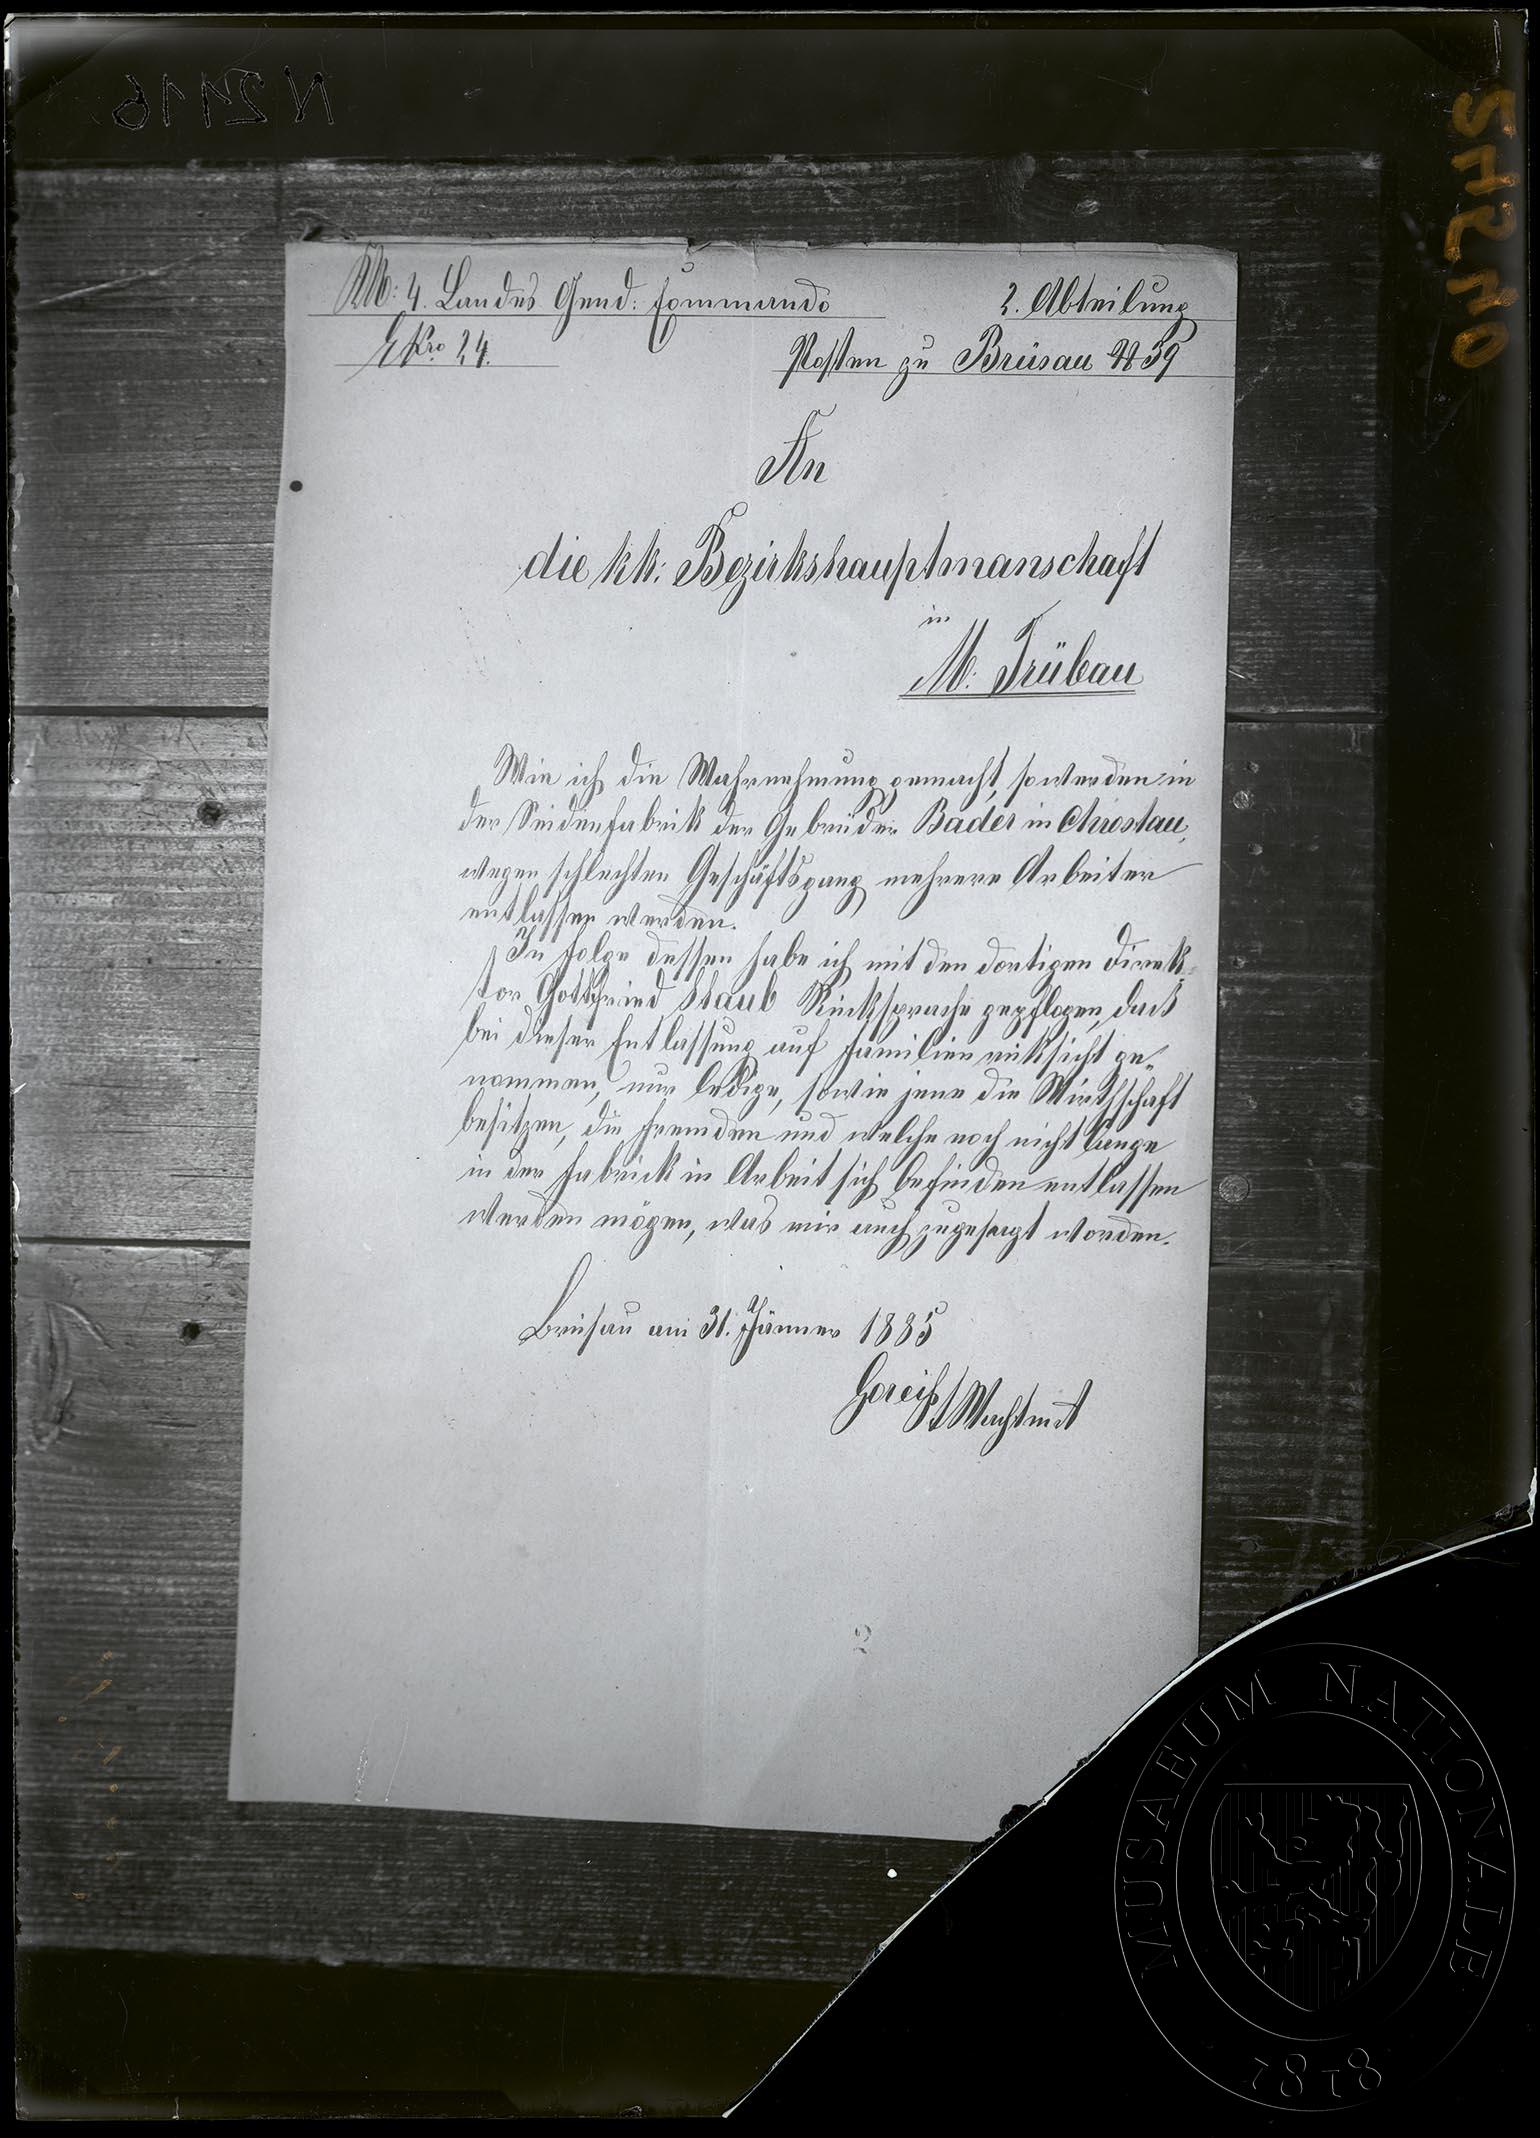 N 2116
2H5H0
KM: 4. Landes Gend: Commando 2. Abteilung
E Nro 24. Posten zu Brüsau N 39
An
die kk: Bezirkshauptmanschaft
in
M: Trübau
Wie ich die Wahrnehmung gemacht, so werden in
der Seidenfabrik der Gebrüder Bader in Chrostau,
wegen schlechten Geschäftsgang mehrere Arbeiter
entlassen werden.
In Folge dessen habe ich mit den dortigen Direk-
tor Gottfried Staub Rücksprache gepflogen, daß
bei dieser Entlassung auf Familien rüksicht ge-
nommen, nur ledige, sowie jene die Wirthschaft
besitzen, die Fremden und welche noch nicht lange
in der Fabrick in Arbeit sich befinden entlassen
werden mögen, was mir auch zugesagt worden.
Brüsau am 31. Jänner 1885
Wachtmst
2
MUSAEUM NATIONALE
1818